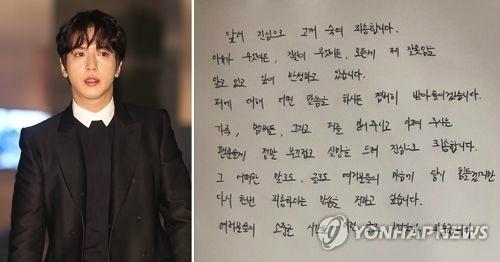 앞서 진심으로 고개 숙여 죄송합니다.
이유가 무엇이든, 무엇이든, 모든게 제 잘못임을
알고 있고 깊이 반성하고 있습니다.
저에 대해 어떤 말씀을 하시든 겸허히 받아들이겠습니다.
가족, 멤버들, 그리고 저를 믿어주시고 아껴 주시는
팬분들께 정말 부끄럽고 실망을 드려 진심으로 죄송합니다.
그 어떠한 말로도, 글로도 여러분들의 마음이 힘들겠지만
다시 한번 죄송하다는 말씀을 전하고 싶습니다.
여러분들의 소중한 시간을
YONHAPNEWS
YONHAPNEWS